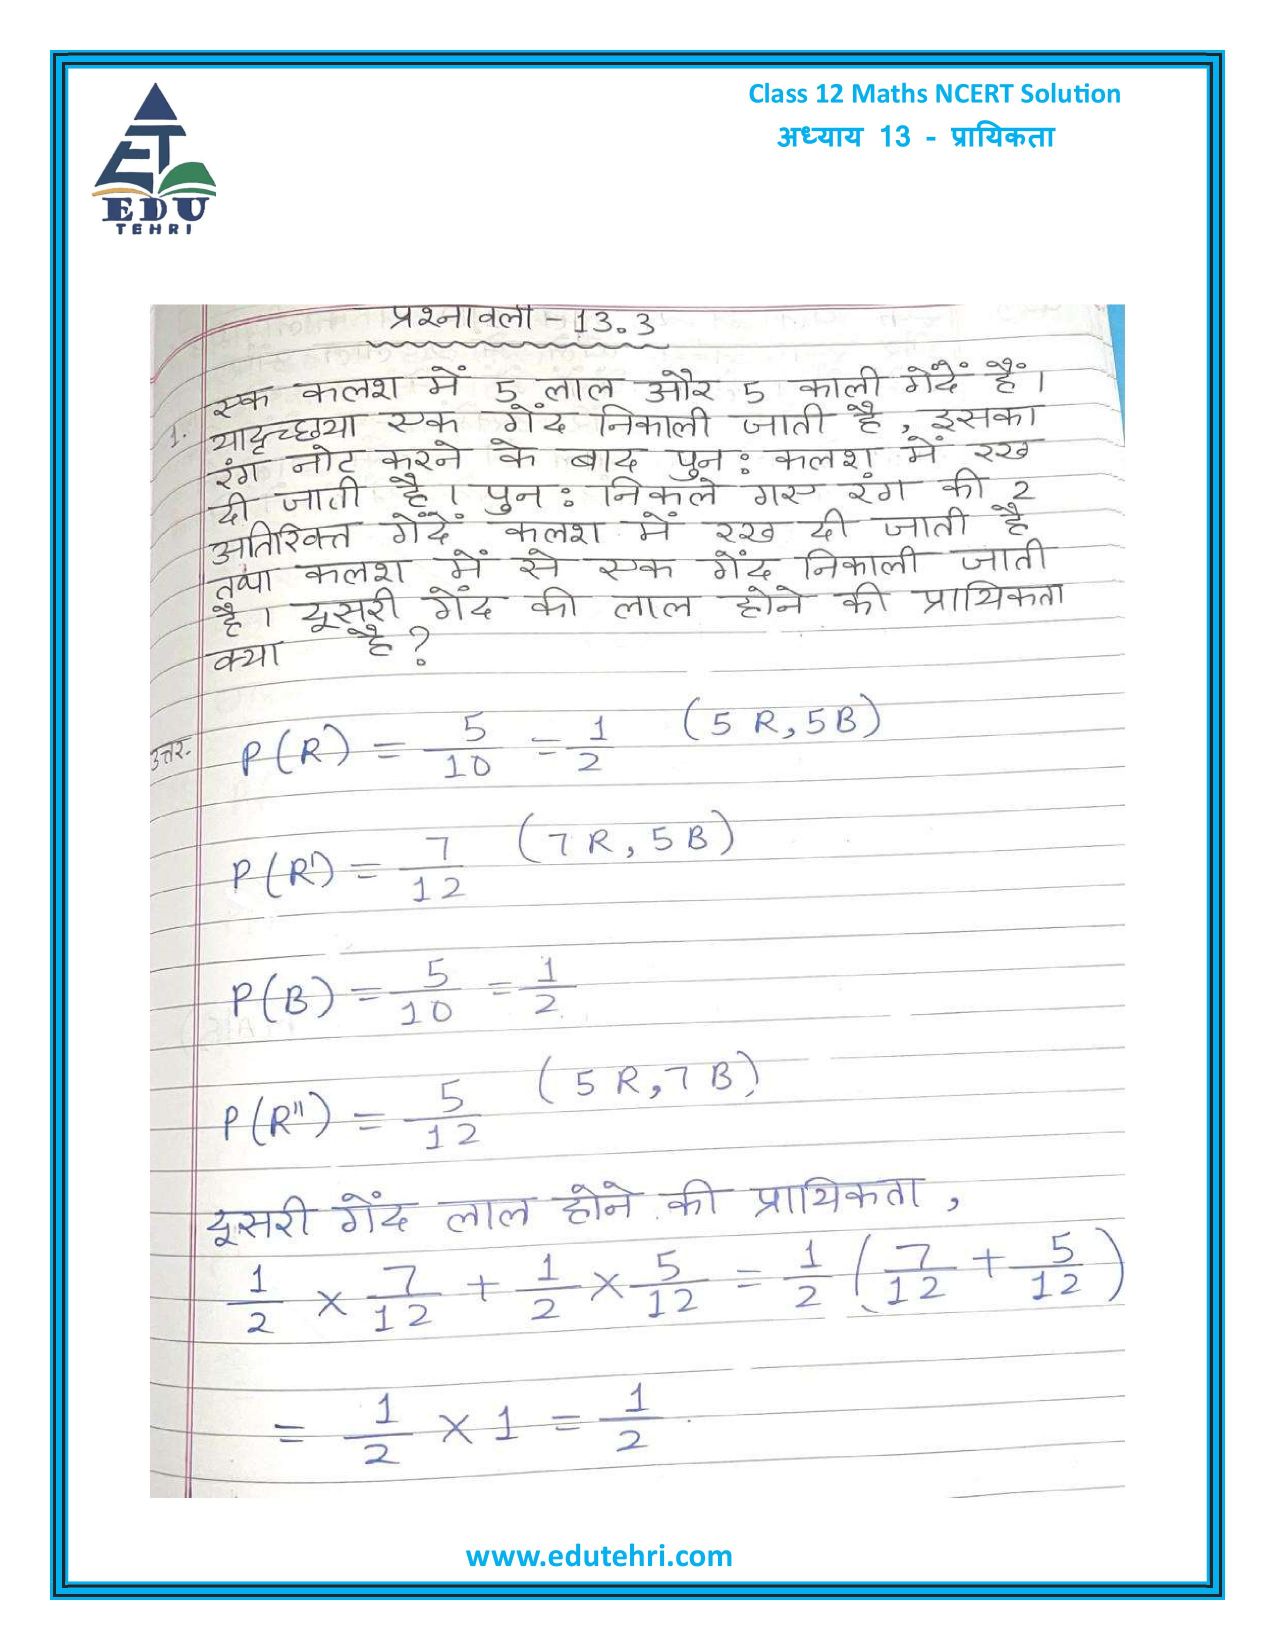 Class 12 Maths NCERT Solution
अध्याय 13 - प्रायिकता
EDU
TEHRI
प्रश्नावली - 13.3
1. एक कलश में 5 लाल और 5 काली गेंदें हैं।
यादृच्छया एक गेंद निकाली जाती है, इसका
रंग नोट करने के बाद पुनः कलश में रख
दी जाती है। पुनः निकले गए रंग की 2
अतिरिक्त गेंदें कलश में रख दी जाती है
तथा कलश में से एक गेंद निकाली जाती
है। दूसरी गेंद की लाल होने की प्रायिकता
क्या है?
उत्तर. P(R) = 5/10 = 1/2 (5 R, 5B)
P(R') = 7/12 (7 R, 5 B)
P(B) = 5/10 = 1/2
P(R") = 5/12 (5 R, 7 B)
दूसरी गेंद लाल होने की प्रायिकता,
1/2 × 7/12 + 1/2 × 5/12 = 1/2 (7/12 + 5/12)
= 1/2 × 1 = 1/2
www.edutehri.com